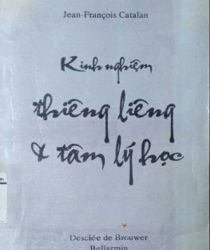 Jean-François Catalan
Kinh nghiệm
thiêng liêng
& tâm lý học
Desclée de Brouwer
Bellarmin